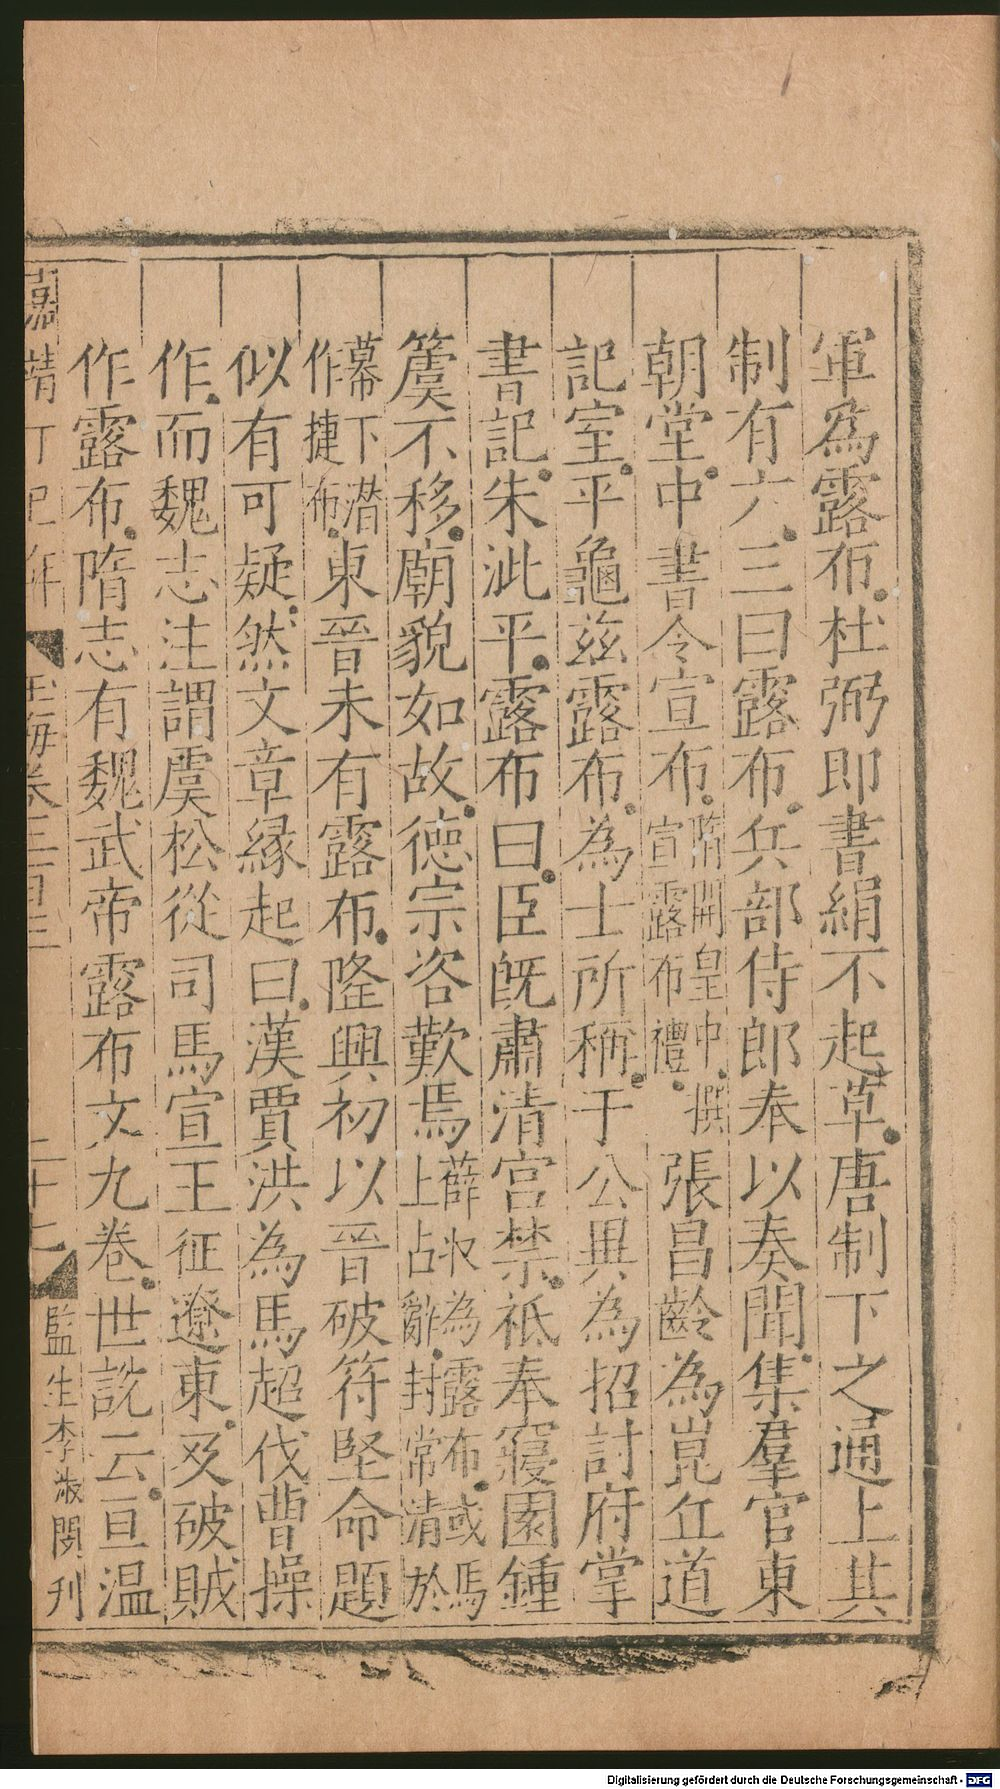 軍為露布杜弼即書絹不起草唐制下之通上其
制有六三曰露布兵部侍郎奉以奏聞集羣官東
朝堂中書令宣布隋開皇中撰宣露布禮張昌齡為崑丘道
記室平龜茲露布為士所稱于公異為招討府掌
書記朱泚平露布曰臣旣肅清宮禁祗奉寢園鍾
簴不移廟貌如故德宗咨歎焉薛收為露布或馬上占辭封常清於
幕下潛作捷布東晉未有露布隆興初以晉破符堅命題
似有可疑然文章縁起曰漢賈洪為馬超伐曹操
作而魏志注謂虞松從司馬宣王征遼東及破賊
作露布隋志有魏武帝露布文九卷世説云亘温
嘉靖丁巳年 玉海卷二百三 二十七 監生李淑閔刋
Digitalisierung gefördert durch die Deutsche Forschungsgemeinschaft - DFG